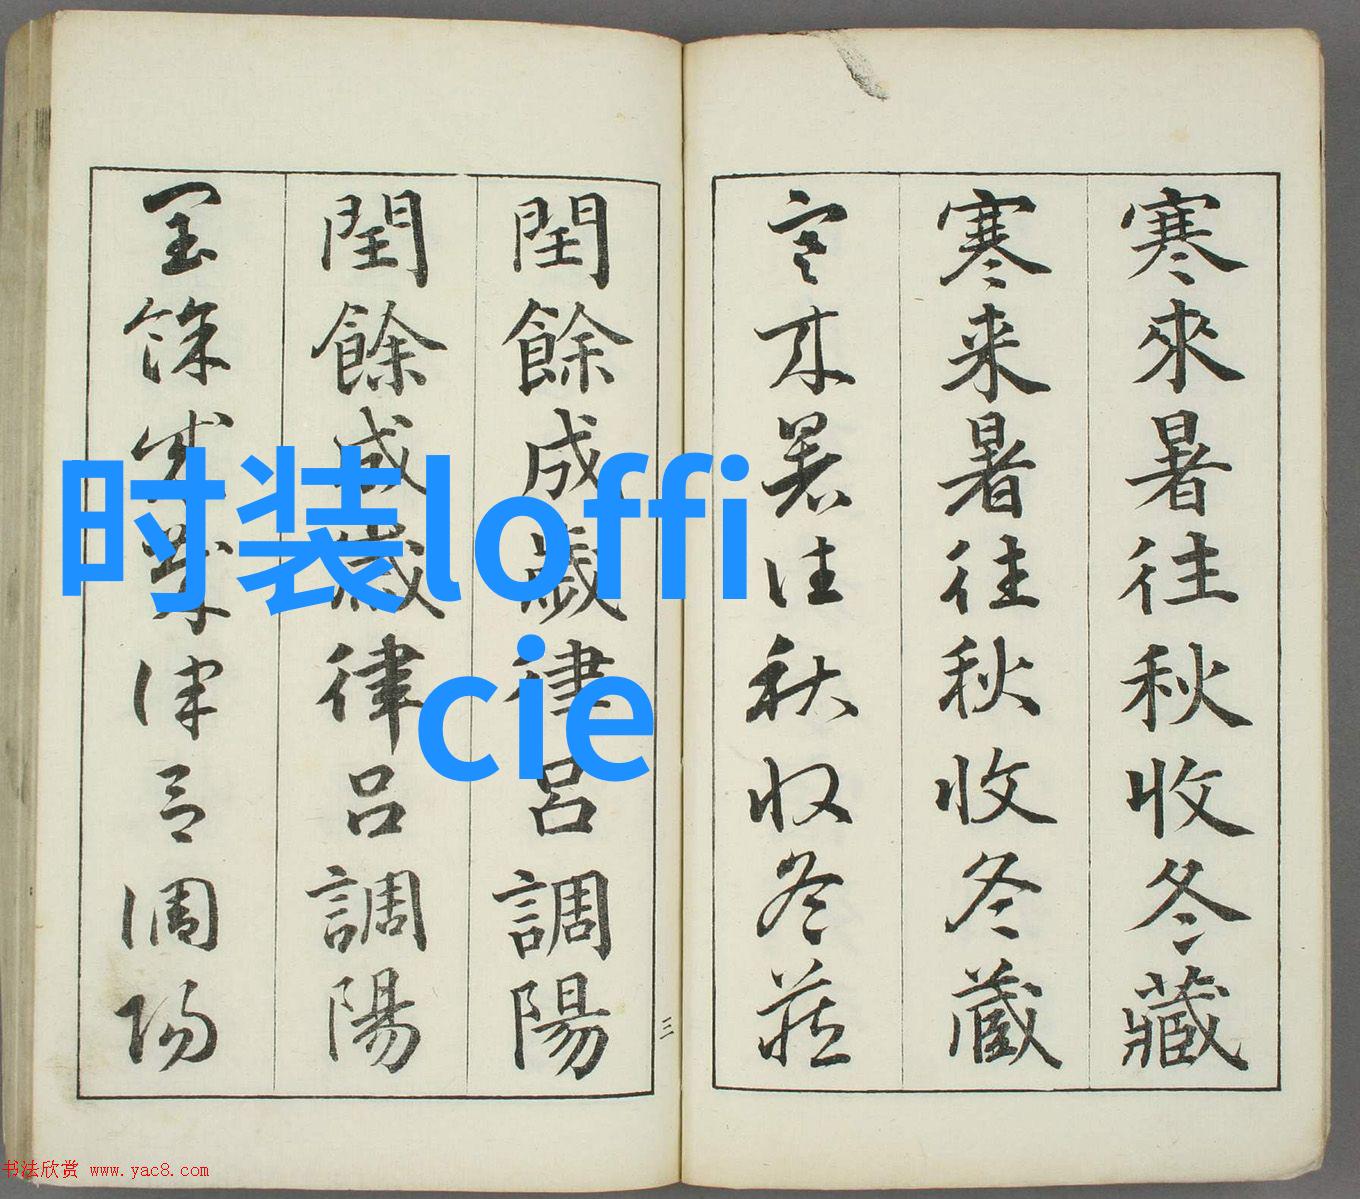 寒來暑往秋收冬藏
寒来暑往秋收冬蔵
寒来暑往秋收冬藏
三
閏餘成歲律呂調陽
閏餘成歲律吕調陽
閏餘成歲律呂調陽
时装loffi
cie
书法欣赏 www.yac8.com